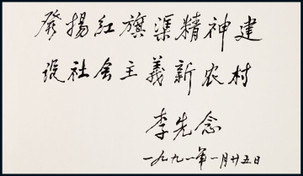 發揚紅旗渠精神建
設社会主義新农村
李先念
一九九一年一月廿五日